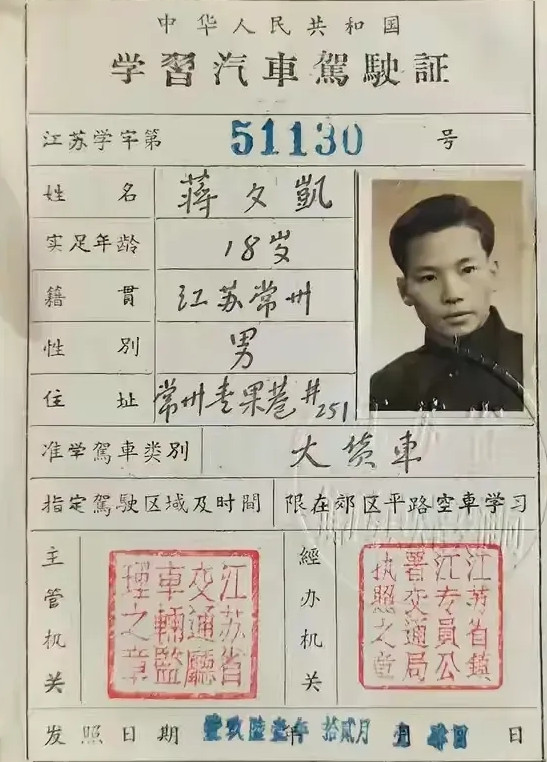 中华人民共和国
学習汽車駕駛証
江苏学字第 51130 号
姓名 蒋夕凱
实足年龄 18岁
籍貫 江苏常州
性別 男
住址 常州青果巷#251
准学駕車类別 大货車
指定駕駛区域及时間 限在郊区平路空車学习
主管机关
江苏省
交通廳
車輛監
理之章
經办机关
江苏省鎮
江专員公
署交通局
执照之章
发照日期 壹玖陸壹年 拾貳月 日